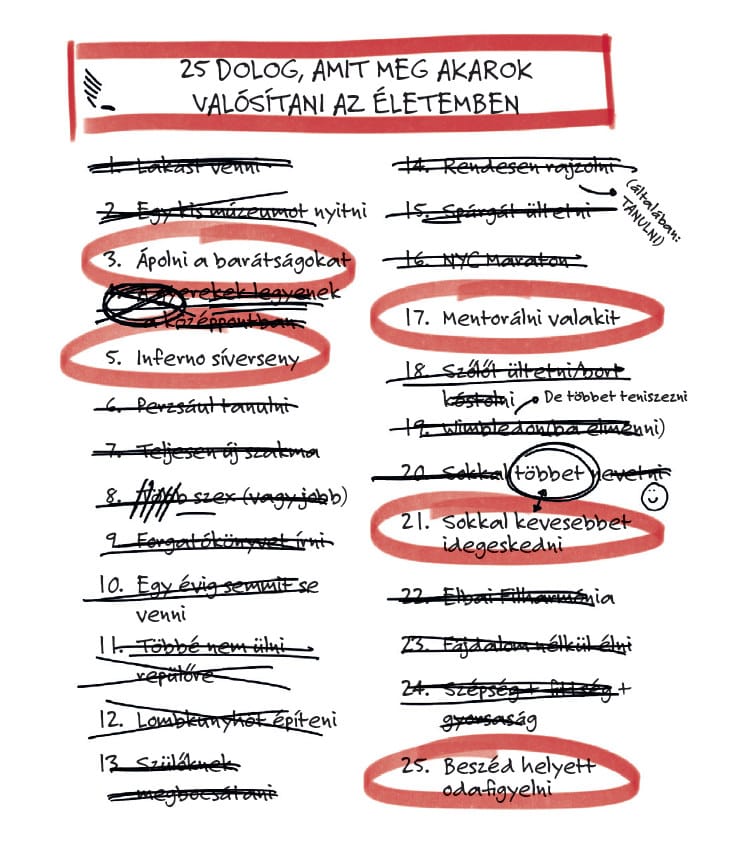 25 DOLOG, AMIT MEG AKAROK
VALÓSÍTANI AZ ÉLETEMBEN
1. Lakást venni
2. Egy kis múzeumot nyitni
3. Ápolni a barátságokat
4. A gyerekek legyenek
a középpontban
5. Inferno síverseny
6. Perzsául tanulni
7. Teljesen új szakma
8. Több szex (vagy jobb)
9. Forgatókönyvet írni
10. Egy évig semmit se
venni
11. Többé nem ülni
repülőre
12. Lombkunyhót építeni
13. Szülőknek
megbocsátani
14. Rendesen rajzolni
(általában:
TANULNI)
15. Spárgát ültetni
16. NYC Maraton
17. Mentorálni valakit
18. Szőlőt ültetni/bort
kóstolni
De többet teniszezni
19. Wimbledon(ba elmenni)
20. Sokkal többet nevetni
21. Sokkal kevesebbet
idegeskedni
22. Elbai Filharmónia
23. Fájdalom nélkül élni
24. Szépség + fittség +
gyorsaság
25. Beszéd helyett
odafigyelni